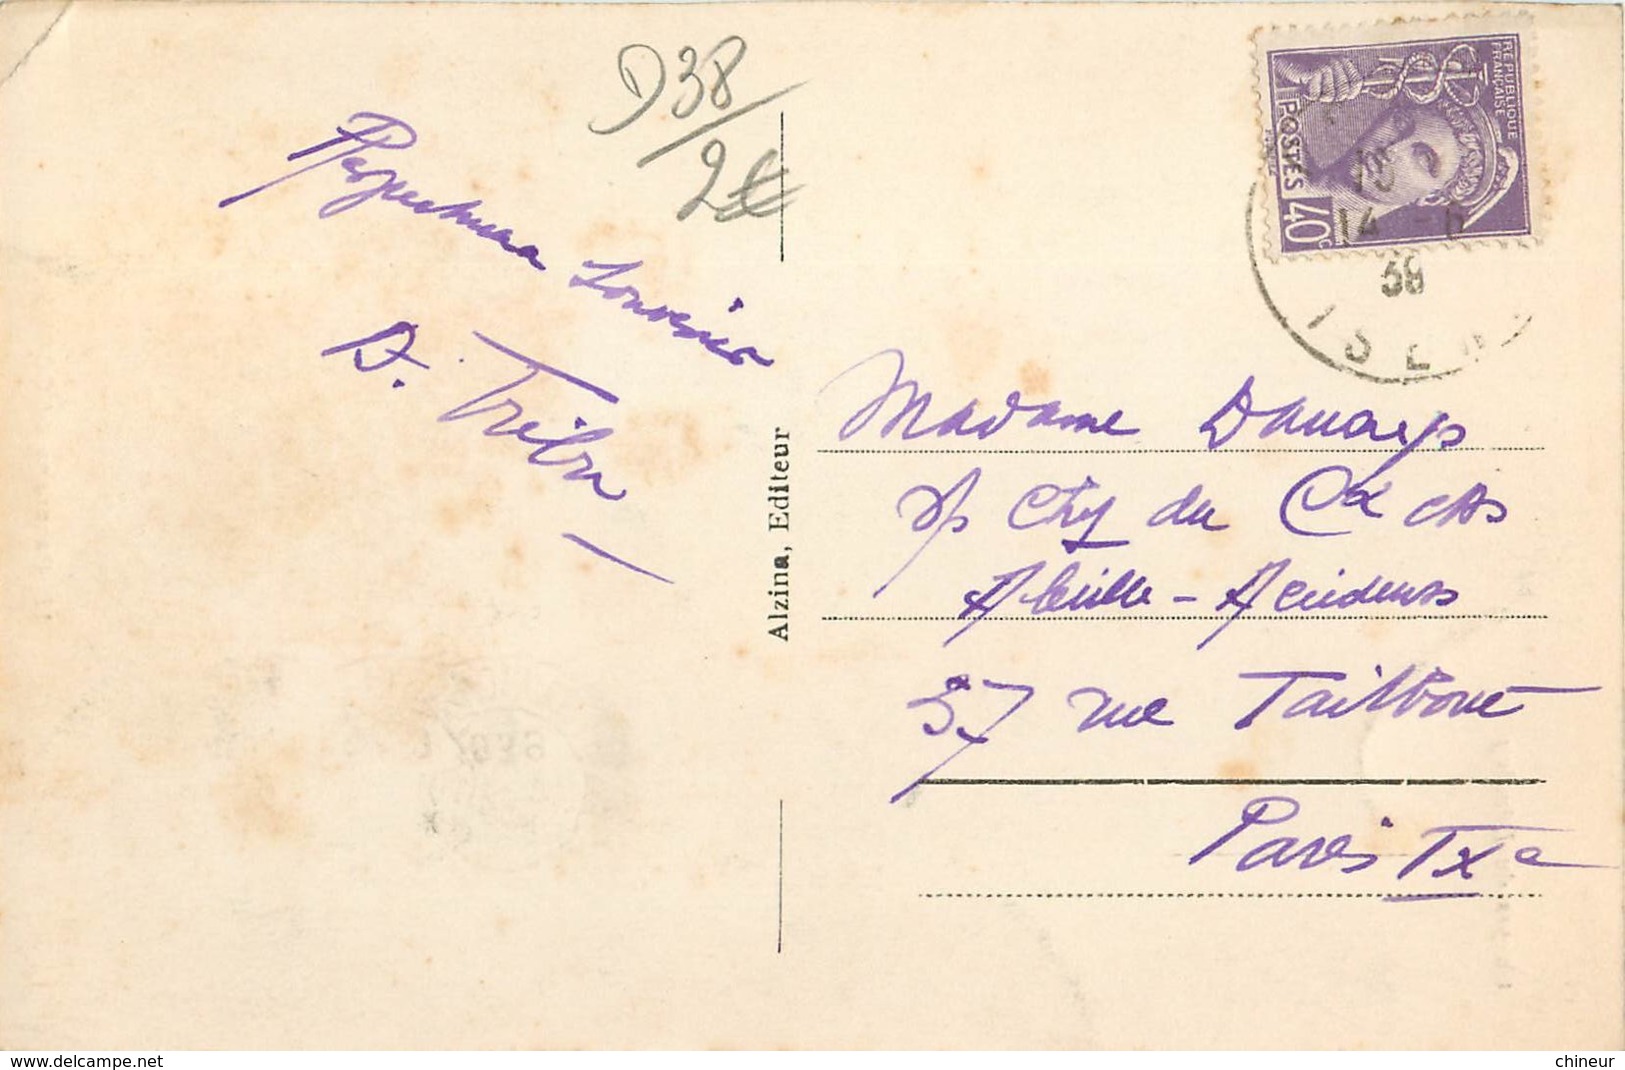 D38/
2€
Respectueux Souvenir
D.
Alzina, Editeur
REPUBLIQUE
FRANÇAISE
POSTES 40c
14 - 6
38
ISERE
Madame
s/ Chy du
Abeille - Accidents
37 rue Taitbout
Paris IXe
www.delcampe.net
chineur